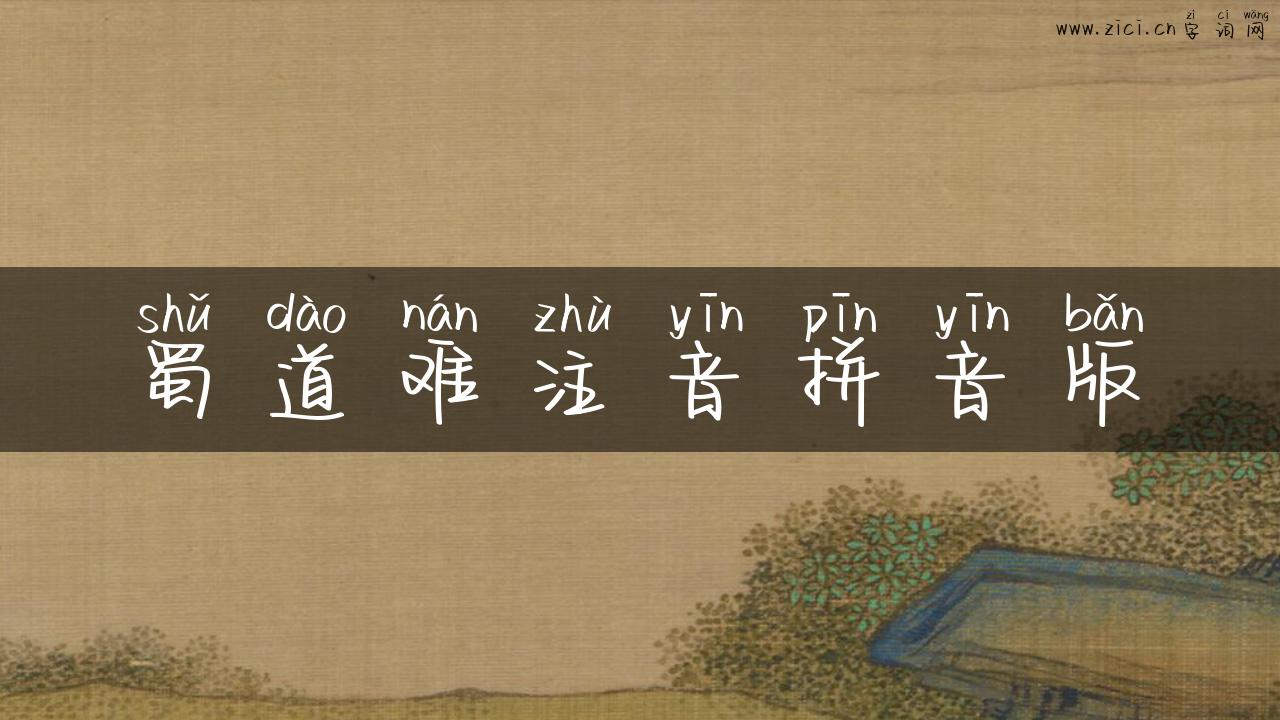 zì cí wǎng
www.zici.cn 字词网
shǔ dào nán zhù yīn pīn yīn bǎn
蜀道难注音拼音版